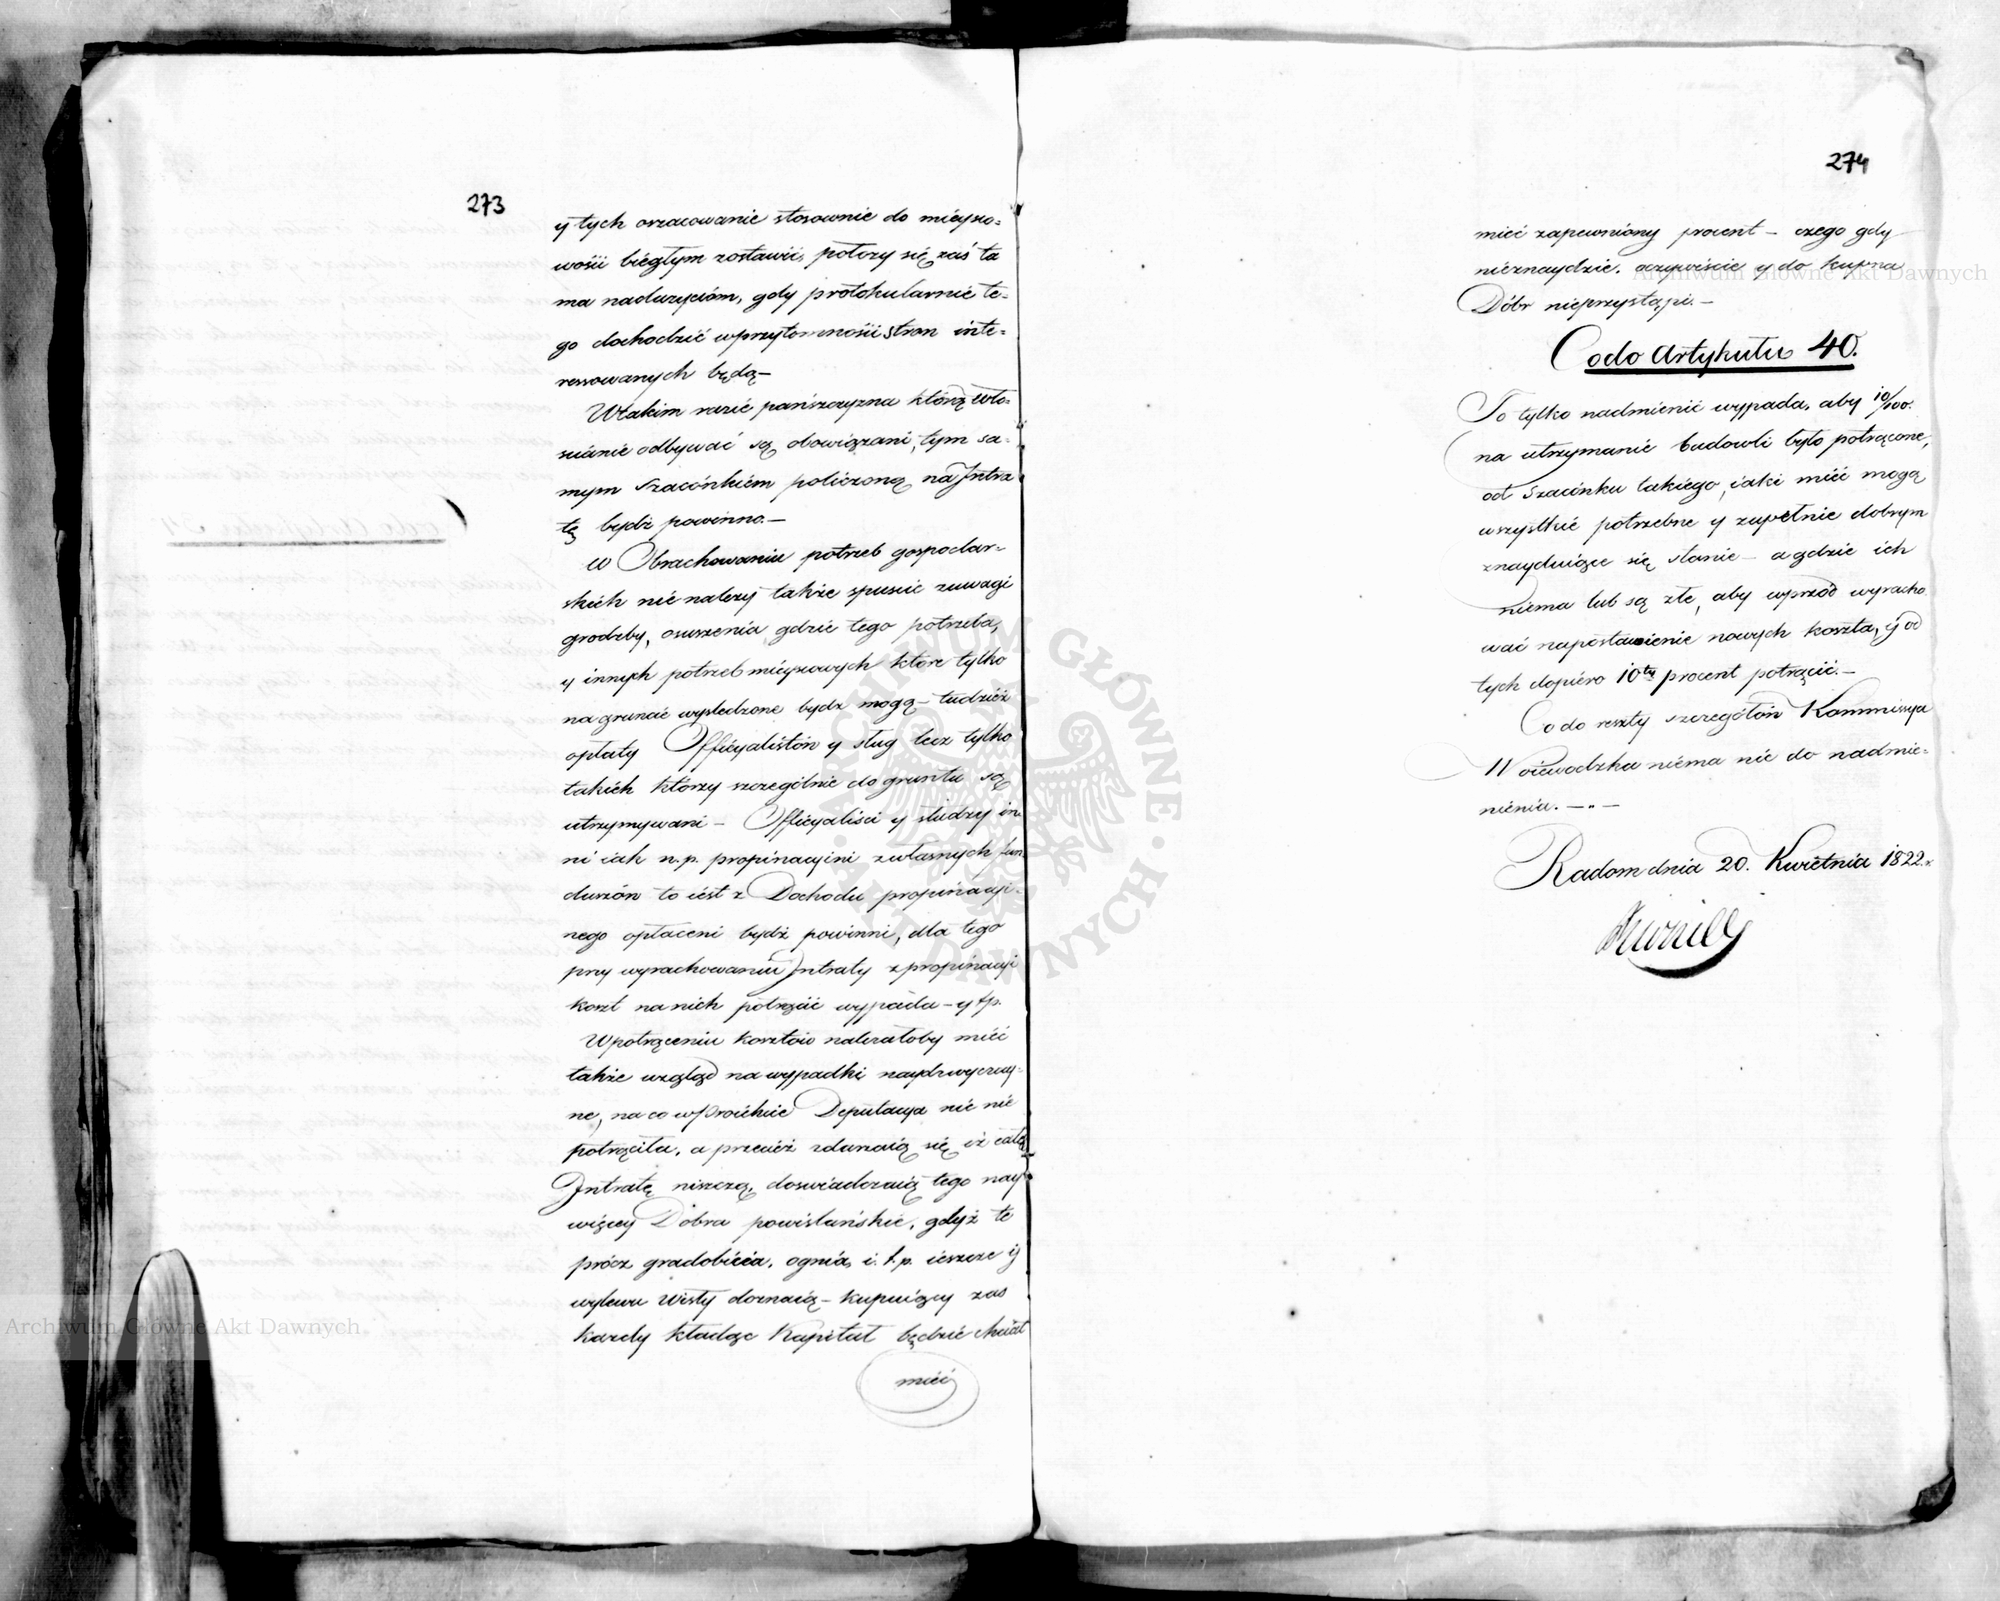 273
y tych oszacowanie stosownie do mieysco-
wości biegłym zostawić, położy się zaś ta
ma nadużyciom, gdy protokularnie te-
go dochodzić w przytomności stron inte-
ressowanych będą—
W takim razie pańszczyzna którą wło-
scianie odbywać są obowiązani, tym sa-
mym szacónkiem policzoną na Intra
tę bydź powinna.—
w Obrachowaniu potrzeb gospodar-
skich nie należy także spuścić z uwagi
grodzby, osuszenia gdzie tego potrzeba,
y innych potrzeb mieyscowych które tylko
na gruncie wyśledzone bydź mogą— tudzież
opłaty Officyalistów y sług lecz tylko
takich którzy szczególnie do gruntu są
utrzymywani— Officyaliści y słudzy in
ni iak n.p. propinacyini z własnych fun
duszów to iest z Dochodu propinacyi-
nego opłaceni bydź powinni, dla tego
przy wyrachowaniu Intraty z propinacyi
koszt na nich potrącić wypada— y t.p.
W potrąceniu kosztów należałoby mieć
także wzgląd na wypadki naydzwyczay-
ne, na co w proiekcie Deputacya nic nie
potrąciła, a przecież zdarzaią się iż całą
Intratę niszczą, doświadczaią tego nay
więcey Dobra powiślańskie, gdyż te
prócz gradobicia, ognia, i. t. p. ieszcze y
wylewu Wisły doznaią— kupuiący zaś
każdy kładąc Kapitał będzie chciał
mieć
274
mieć zapewniony procent— czego gdy
nieznaydzie, oczywiście y do kupna
Dóbr nieprzystąpi.—
Co do Artykułu 40.
To tylko nadmienić wypada, aby 10/100.
na utrzymanie budowli było potrącone,
od szacunku takiego, iaki mieć mogą
wszystkie potrzebne y zupełnie dobrym
znayduiące się stanie— a gdzie ich
niema lub są złe, aby wprzód wyracho
wać na postawienie nowych koszta, y od
tych dopiero 10ty procent potrącić.—
Co do reszty szczegółów Kommissya
Woiewodzka niema nic do nadmie-
nienia. —„—
Radom dnia 20. Kwietnia 1822.r.
Archiwum Główne Akt Dawnych
Archiwum Główne Akt Dawnych
ARCHIWUM GŁÓWNE · AKT DAWNYCH ·